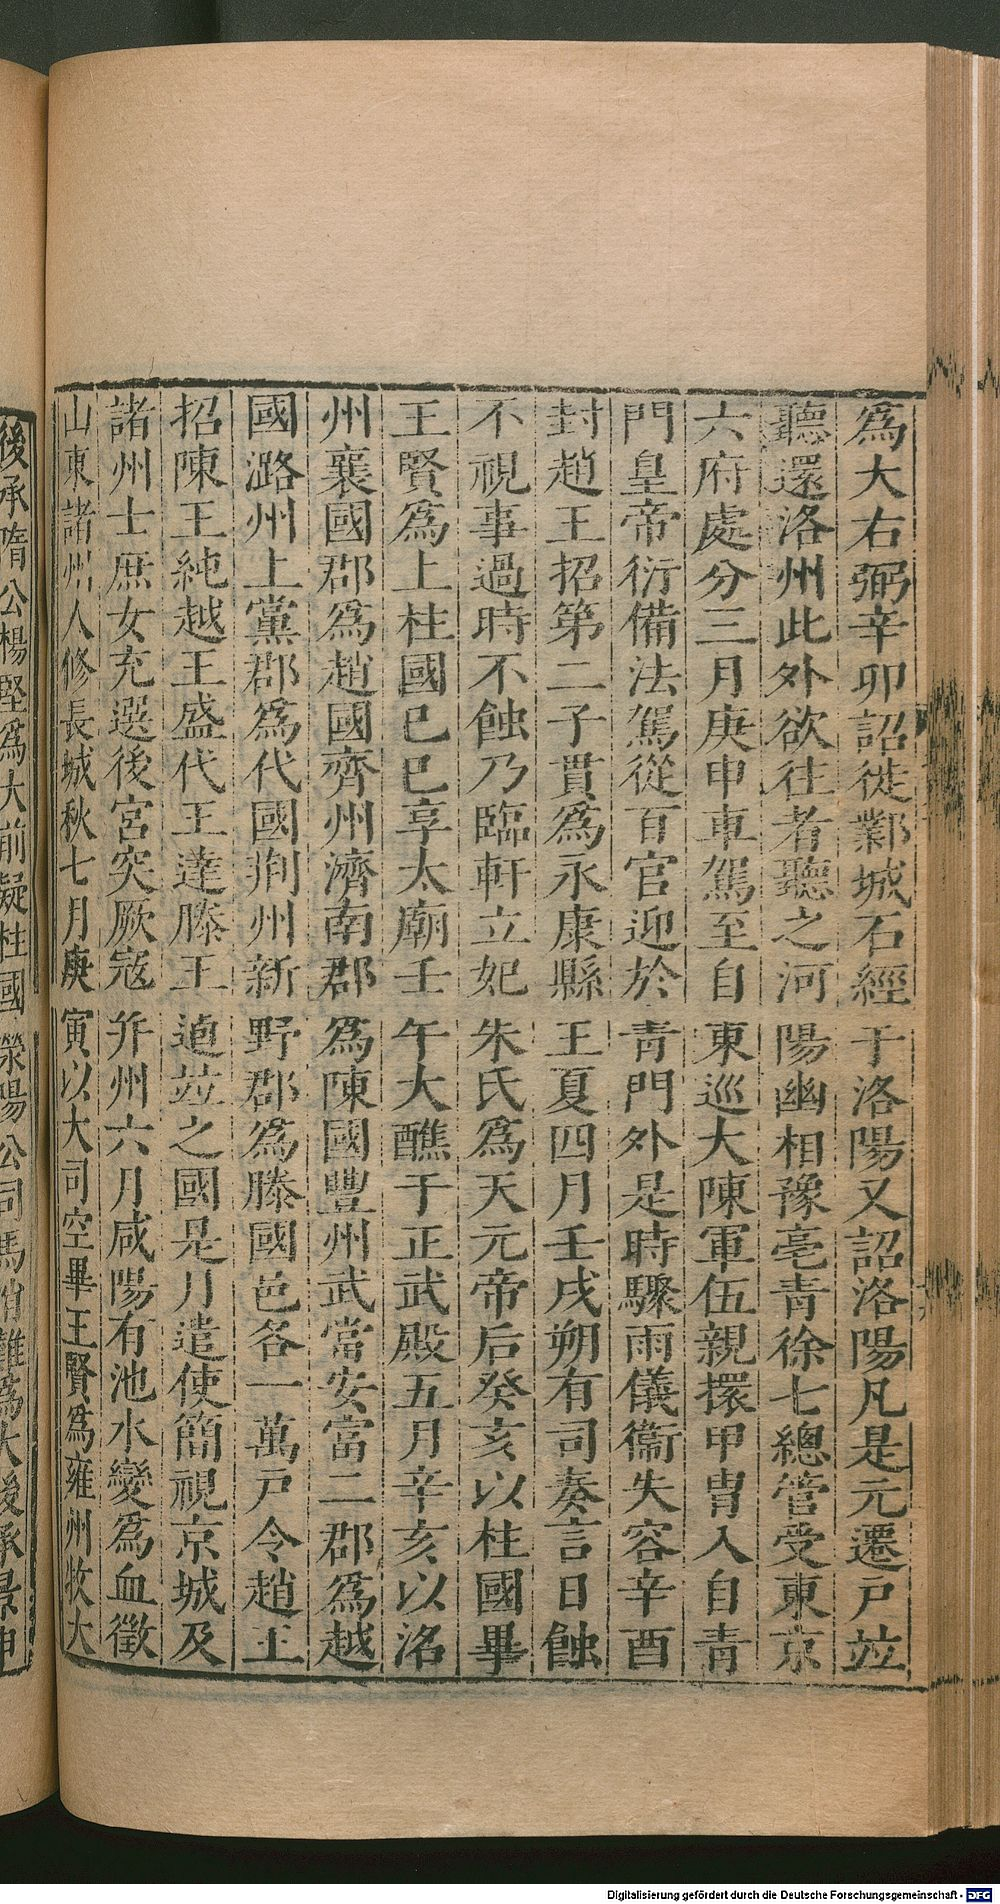 為大右弼辛卯詔徙鄴城石經于洛陽又詔洛陽凡是元遷戶竝
聽還洛州此外欲往者聽之河陽幽相豫亳青徐七總管受東京
六府處分三月庚申車駕至自東巡大陳軍伍親擐甲胄入自青
門皇帝衍備法駕從百官迎於青門外是時驟雨儀衞失容辛酉
封趙王招第二子貫為永康縣王夏四月壬戌朔有司奏言日蝕
不視事過時不蝕乃臨軒立妃朱氏為天元帝后癸亥以柱國畢
王賢為上柱國己巳享太廟壬午大醮于正武殿五月辛亥以洺
州襄國郡為趙國齊州濟南郡為陳國豐州武當安富二郡為越
國潞州上黨郡為代國荆州新野郡為滕國邑各一萬戶令趙王
招陳王純越王盛代王達滕王逌竝之國是月遣使簡視京城及
諸州士庶女充選後宮突厥寇并州六月咸陽有池水變為血徵
山東諸州人修長城秋七月庚寅以大司空畢王賢為雍州牧大
後承隋公楊堅為大前疑柱國滎陽公司馬消難為大後承景申
Digitalisierung gefördert durch die Deutsche Forschungsgemeinschaft - DFG